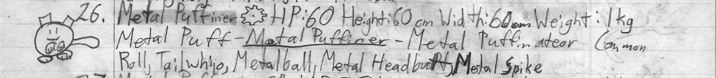 26. Metal Puffiner HP:60 Height:60 cm Width:60cm Weight:1kg
Metal Puff-Metal Puffiner-Metal Puffinateor Common
Roll, Tailwhip, Metalball, Metal Headbutt, Metal Spike